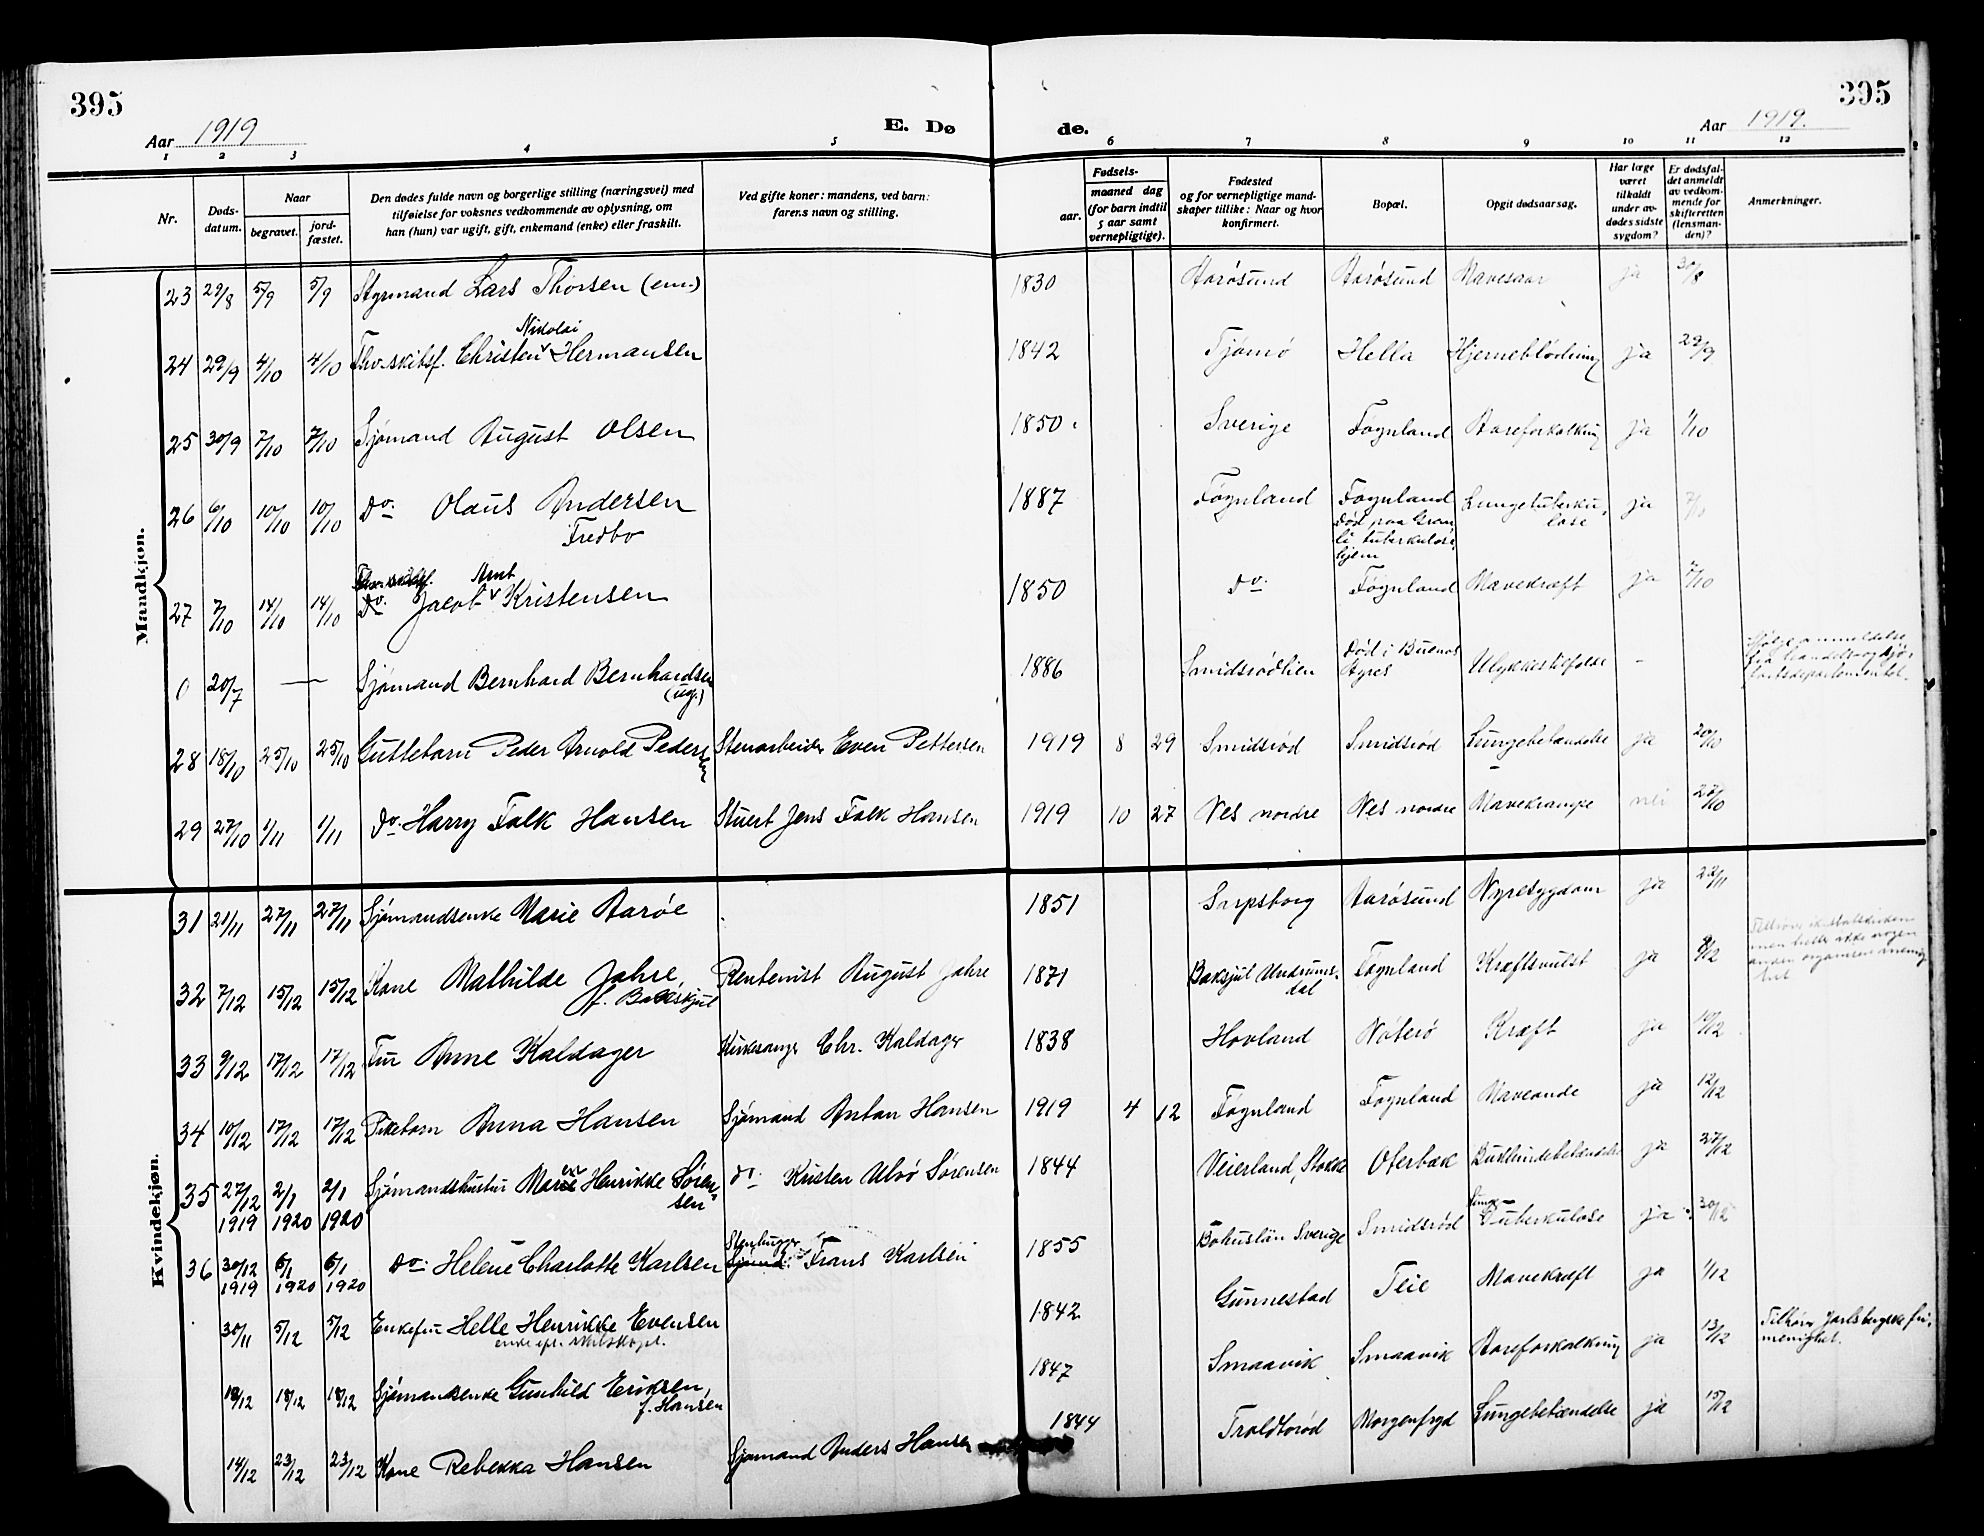 395
395
Aar 1919
E. Dø
de.
Aar 1919.
1 2 3 4 5 6 7 8 9 10 11 12
Nr.
Døds-
datum.
Naar
begravet.
jord-
fæstet.
Den dødes fulde navn og borgerlige stilling (næringsvei) med
tilføielse for voksnes vedkommende av oplysning, om
han (hun) var ugift, gift, enkemand (enke) eller fraskilt.
Ved gifte koner: mandens, ved barn:
farens navn og stilling.
Fødsels-
aar.
maaned dag
(for barn indtil
5 aar samt
vernepligtige).
Fødested
og for vernepligtige mand-
skaper tillike: Naar og hvor
konfirmert.
Bopæl.
Opgit dødsaarsag.
Har læge
været
tilkaldt
under av-
dødes sidste
sygdom?
Er dødsfal-
det anmeldt
av vedkom-
mende for
skifteretten
(lensman-
den)?
Anmerkninger.
Mandkjøn.
23 29/8 5/9 5/9 Styrmand Lars Thorsen (em.) 1830 Aarøsund Aarøsund Mavesaar ja 30/8
Nikolai
24 29/9 4/10 4/10 Fhv. skibsf. Christen Hermansen 1842 Tjømø Hella Hjerneblødning ja 29/9
25 30/9 7/10 7/10 Sjømand August Olsen 1850 Sverige Føynland Aareforkalkning ja 1/10
26 6/10 10/10 10/10 Do. Olaus Andersen 1887 Føynland Føynland Lungetuberku- ja 7/10
Fredbo død paa Gran- lose
li tuberkulose-
hjem
Fhv. skibsf. Arnt
27 7/10 14/10 14/10 Do. Jacob Kristensen 1850 Do. Føynland Mavekræft ja 7/10
0 20/7 — Sjømand Bernhard Bernhardsen 1886 Smidsrødlien Død i Buenos Ulykkestilfælde -
(ug.) Ayres
28 18/10 25/10 25/10 Guttebarn Peder Arnold Pedersen Stenarbeider Even Pettersen 1919 8 29 Smidsrød Smidsrød Lungebetændelse ja 20/10
29 27/10 1/11 1/11 Do. Harry Falk Hansen Stuert Jens Falk Hansen 1919 10 27 Nes nordre Nes nordre Mavekrampe nei 28/10
Kvindekjøn.
31 21/11 27/11 27/11 Sjømandsenke Marie Aarøe 1851 Sarpsborg Aarøsund Nyresygdom ja 22/11
32 7/12 15/12 15/12 Kone Mathilde Jahre, Rentenist August Jahre 1871 Baksjul Undrums- Føynland Kræftsvulst ja 8/12
f. Bakskjul dal
33 9/12 17/12 17/12 Fru Anne Kaldager Kirkesanger Chr. Kaldager 1838 Hovland Nøterø Kræft ja 10/12
34 10/12 17/12 17/12 Pikebarn Anna Hansen Sjømand Anton Hansen 1919 4 12 Føynland Føynland Maveonde ja 12/12
35 27/12 2/1 2/1 Sjømandshustru Maren Henrikke Søren- do. Kristen Ulvø Sørensen 1844 Veierland, Stokke Oterbæk Bukhindebetændelse ja 27/12
1919 1920 1920 sen
Stenhugger Lunge-
36 30/12 6/1 6/1 Do. Helene Charlotte Karlsen Sjømd. Frans Karlsen 1855 Bohuslän Sverige Smidsrød Tuberkulose ja 30/12
1919 1920 1920
30/11 5/12 5/12 Enkefru Helle Henrikke Evensen 1842 Gunnestad Teie Mavekræft ja 1/12
enke eft. skibskapt.
18/12 18/12 Sjømandsenke Gunhild Eriksen, 1847 Smaavik Smaavik Aareforkalkning ja 13/12 Tilhører Jarlsbergske fri-
f. Hansen menighet.
14/12 23/12 23/12 Kone Rebekka Hansen Sjømand Anders Hansen 1844 Troldtorød Morgenfryd Lungebetændelse ja 15/12